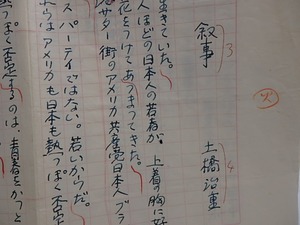 火
叙事 3
土橋治重 4
生きていた。
人ほどの日本人の若者が、上着の胸に好
花をつけてあつまってきた。
サター街のアメリカ共産党日本人ブラ
スパーティではない。若いからだ。
らはアメリカも日本も熱っぽく否定
っぽく否定するのは、青春をかっと